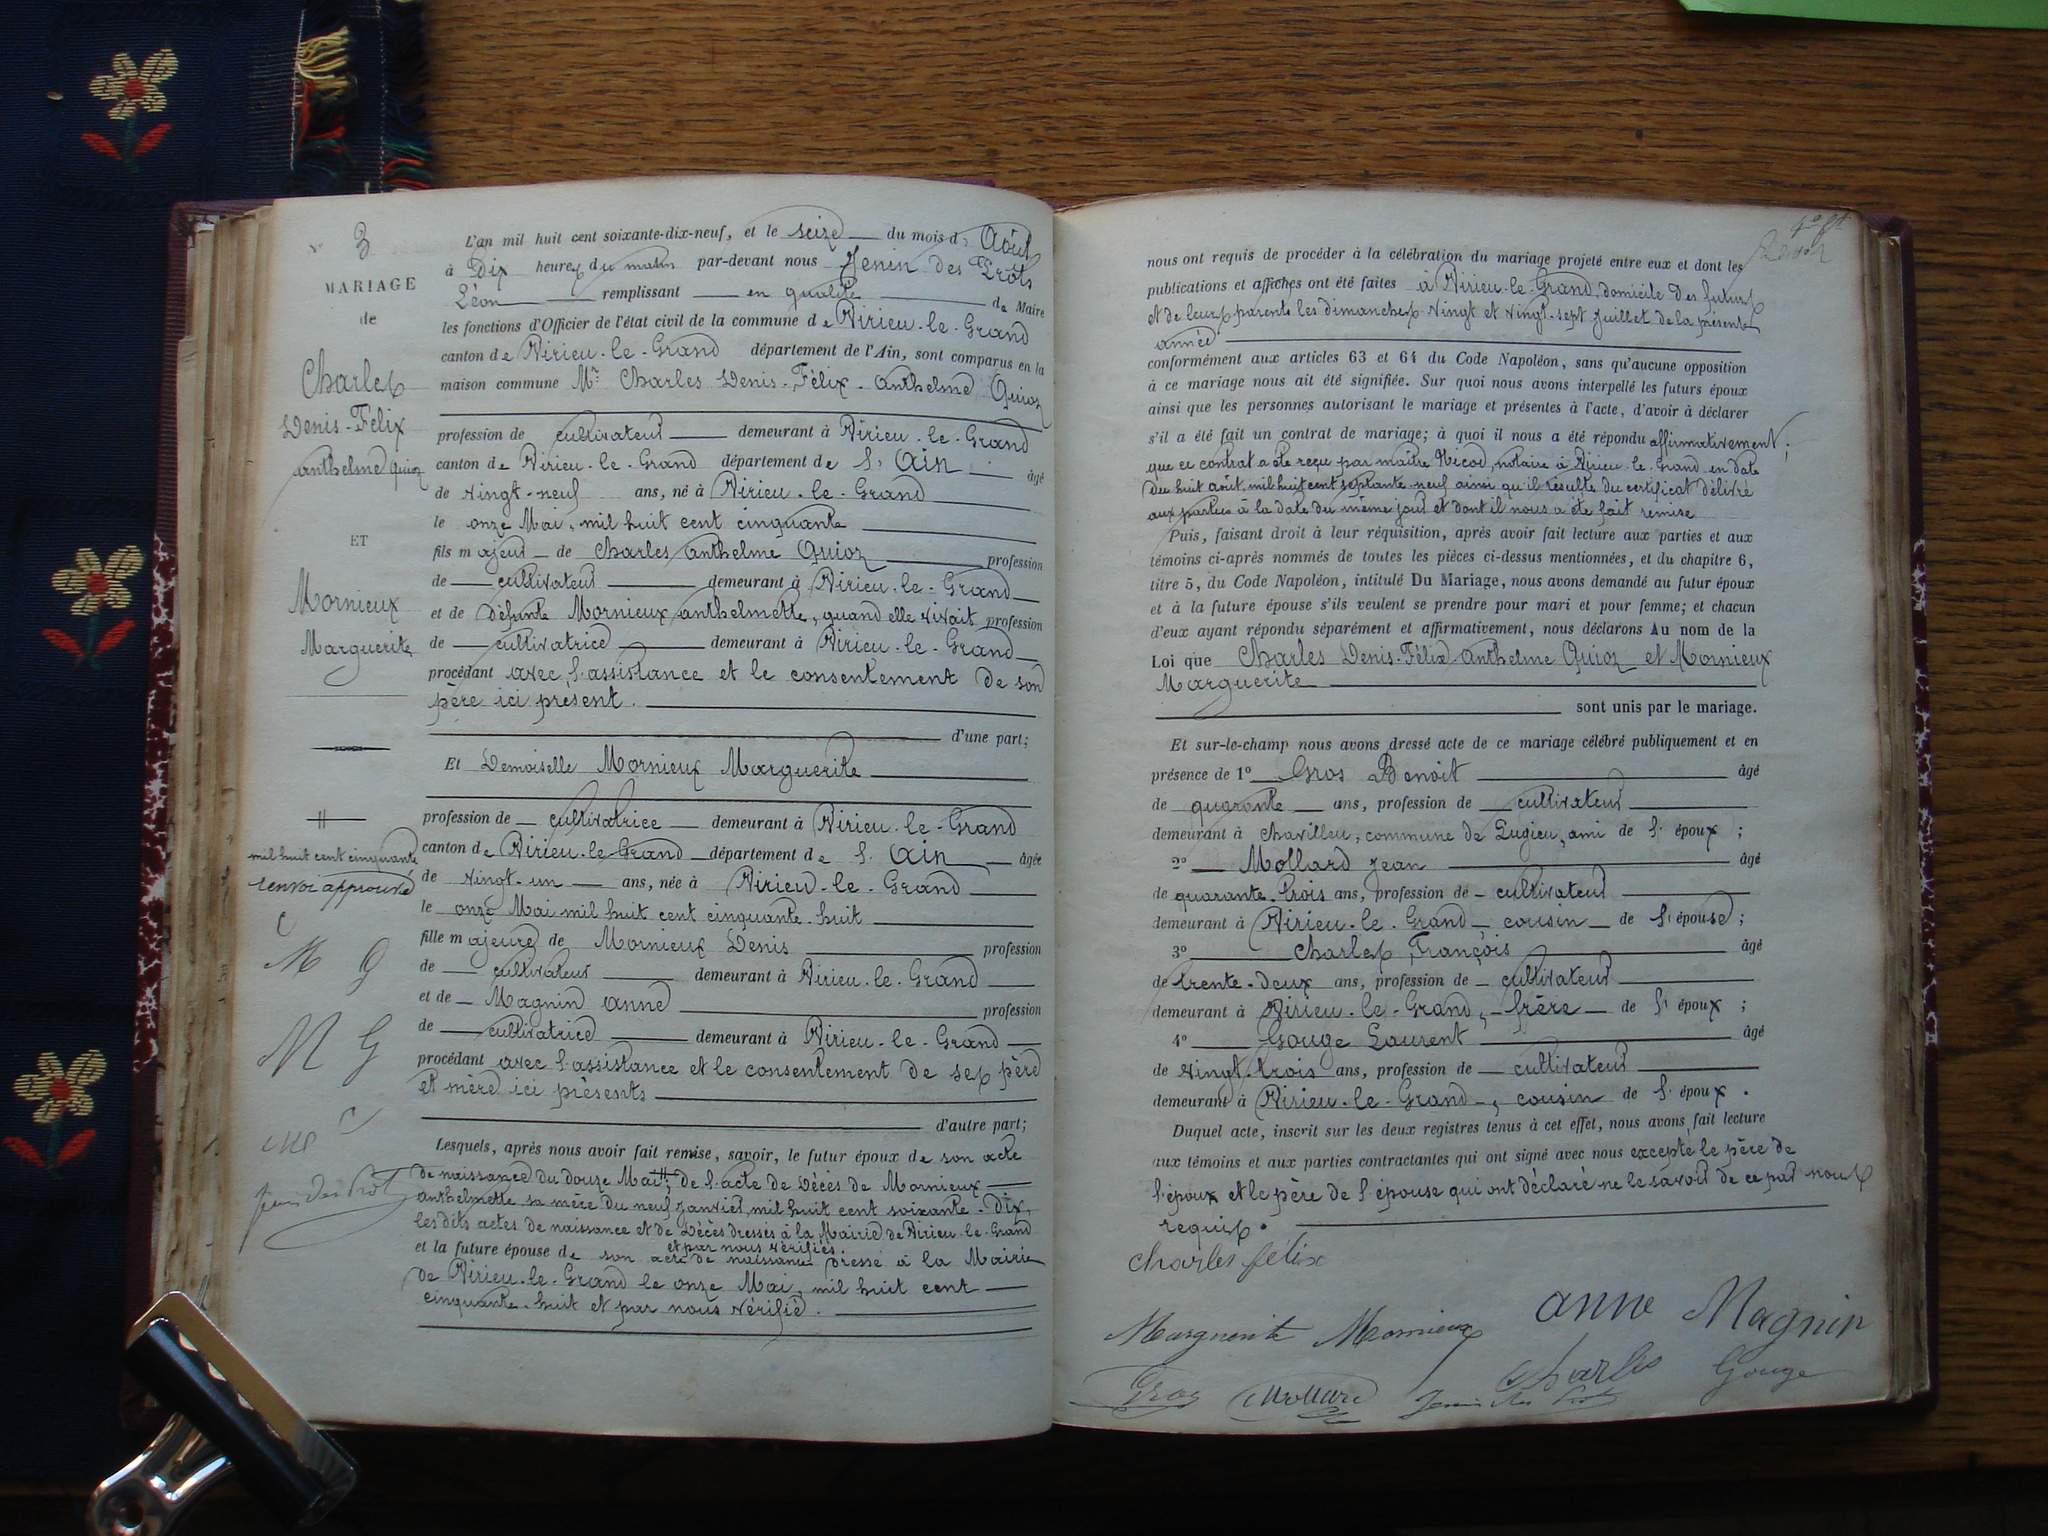 N° 3
MARIAGE
de
Charles
Denis-Félix
anthelme Quioz
ET
Mornieux
Marguerite
mil huit cent cinquante
renvoi approuvé
C
M G
M G
L'an mil huit cent soixante-dix-neuf, et le seize du mois d' Août
à Dix heures du matin par-devant nous Jenin des Prots
Léon remplissant en qualité de Maire
les fonctions d'Officier de l'état civil de la commune de Virieu-le-Grand
canton de Virieu-le-Grand département de l'Ain, sont comparus en la
maison commune Mr Charles Denis-Félix-anthelme Quioz
profession de cultivateur demeurant à Virieu-le-Grand
canton de Virieu-le-Grand département de l'Ain âgé
de vingt-neuf ans, né à Virieu-le-Grand
le onze Mai, mil huit cent cinquante
fils majeur de Charles anthelme Quioz profession
de cultivateur demeurant à Virieu-le-Grand
et de défunte Mornieux anthelmette, quand elle vivait profession
de cultivatrice demeurant à Virieu-le-Grand
procédant avec l'assistance et le consentement de son
père ici présent.
d'une part;
Et Demoiselle Mornieux Marguerite
profession de cultivatrice demeurant à Virieu-le-Grand
canton de Virieu-le-Grand département de l'Ain âgée
de vingt-un ans, née à Virieu-le-Grand
le onze Mai mil huit cent cinquante-huit
fille majeure de Mornieux Denis profession
de cultivateur demeurant à Virieu-le-Grand
et de Magnin anne profession
de cultivatrice demeurant à Virieu-le-Grand
procédant avec l'assistance et le consentement de ses père
et mère ici présents
d'autre part;
Lesquels, après nous avoir fait remise, savoir, le futur époux de son acte
de naissance du douze Mai #; de l'acte de décès de Mornieux
anthelmette sa mère du neuf janvier, mil huit cent soixante-dix,
les dits actes de naissance et de décès dressés à la Mairie de Virieu-le-Grand
et par nous vérifiés.
et la future épouse de son acte de naissance dressé à la Mairie
de Virieu-le-Grand le onze Mai, mil huit cent
cinquante-huit et par nous vérifié.
nous ont requis de procéder à la célébration du mariage projeté entre eux et dont les
publications et affiches ont été faites à Virieu-le-Grand, domicile des futurs
et de leurs parents les dimanches vingt et vingt-sept juillet de la présente
année
conformément aux articles 63 et 64 du Code Napoléon, sans qu'aucune opposition
à ce mariage nous ait été signifiée. Sur quoi nous avons interpellé les futurs époux
ainsi que les personnes autorisant le mariage et présentes à l'acte, d'avoir à déclarer
s'il a été fait un contrat de mariage; à quoi il nous a été répondu affirmativement;
que ce contrat a été reçu par maître Nicod, notaire à Virieu-le-Grand en date
du huit août, mil huit cent septante-neuf ainsi qu'il résulte du certificat délivré
aux parties à la date du même jour et dont il nous a été fait remise
Puis, faisant droit à leur réquisition, après avoir fait lecture aux parties et aux
témoins ci-après nommés de toutes les pièces ci-dessus mentionnées, et du chapitre 6,
titre 5, du Code Napoléon, intitulé Du Mariage, nous avons demandé au futur époux
et à la future épouse s'ils veulent se prendre pour mari et pour femme; et chacun
d'eux ayant répondu séparément et affirmativement, nous déclarons Au nom de la
Loi que Charles Denis-Félix anthelme Quioz et Mornieux
Marguerite
sont unis par le mariage.
Et sur-le-champ nous avons dressé acte de ce mariage célébré publiquement et en
présence de 1° Gros Benoit âgé
de quarante ans, profession de cultivateur
demeurant à chavilleu, commune de Pugieu, ami de l'époux;
2° Mollard jean âgé
de quarante-trois ans, profession de cultivateur
demeurant à Virieu-le-Grand, cousin de l'épouse;
3° charles François âgé
de trente-deux ans, profession de cultivateur
demeurant à Virieu-le-Grand, frère de l'époux;
4° Gouge Laurent âgé
de vingt-trois ans, profession de cultivateur
demeurant à Virieu-le-Grand, cousin de l'époux.
Duquel acte, inscrit sur les deux registres tenus à cet effet, nous avons fait lecture
aux témoins et aux parties contractantes qui ont signé avec nous excepté le père de
l'époux et le père de l'épouse qui ont déclaré ne le savoir de ce par nous
requis.
charles félix
anne Magnin
Marguerite Mornieux
charles Gouge
Gros Mollard Jenin des Prots